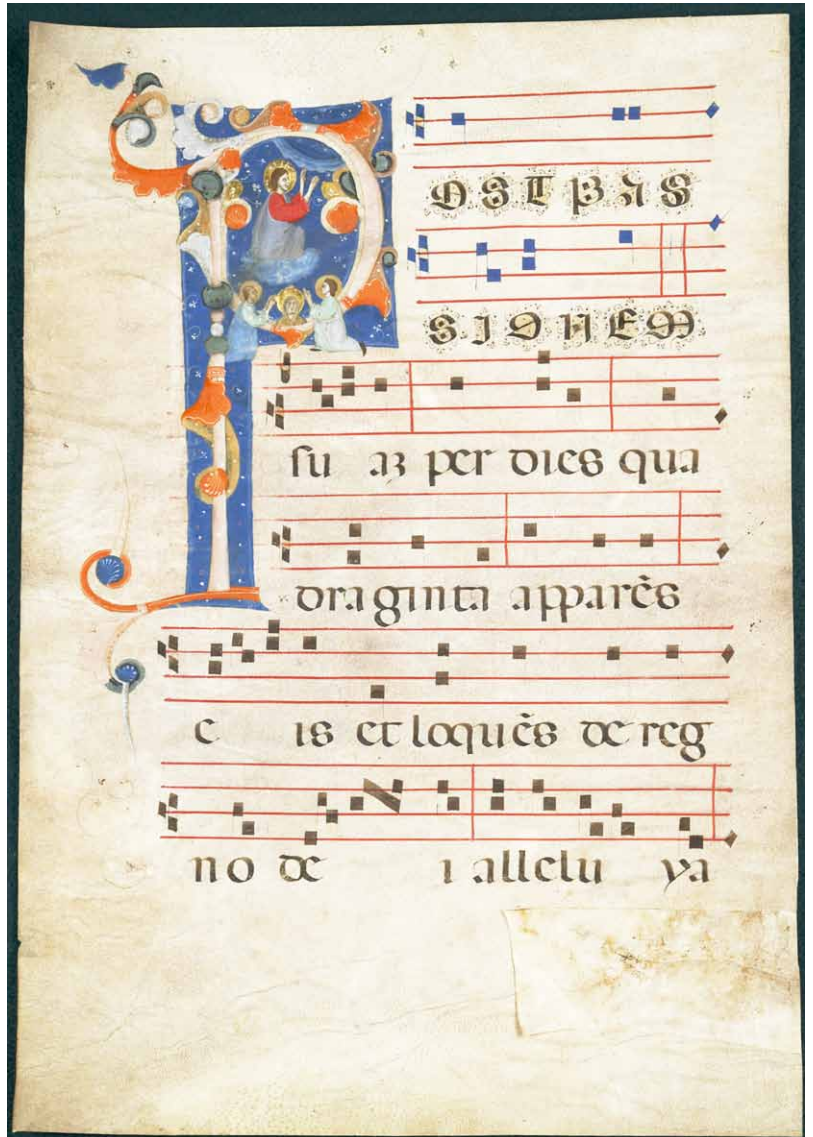 POST PAS
SIONEM
su aʒ per dies qua
draginta apparēs
e is et loquēs de reg
no de i allelu ya